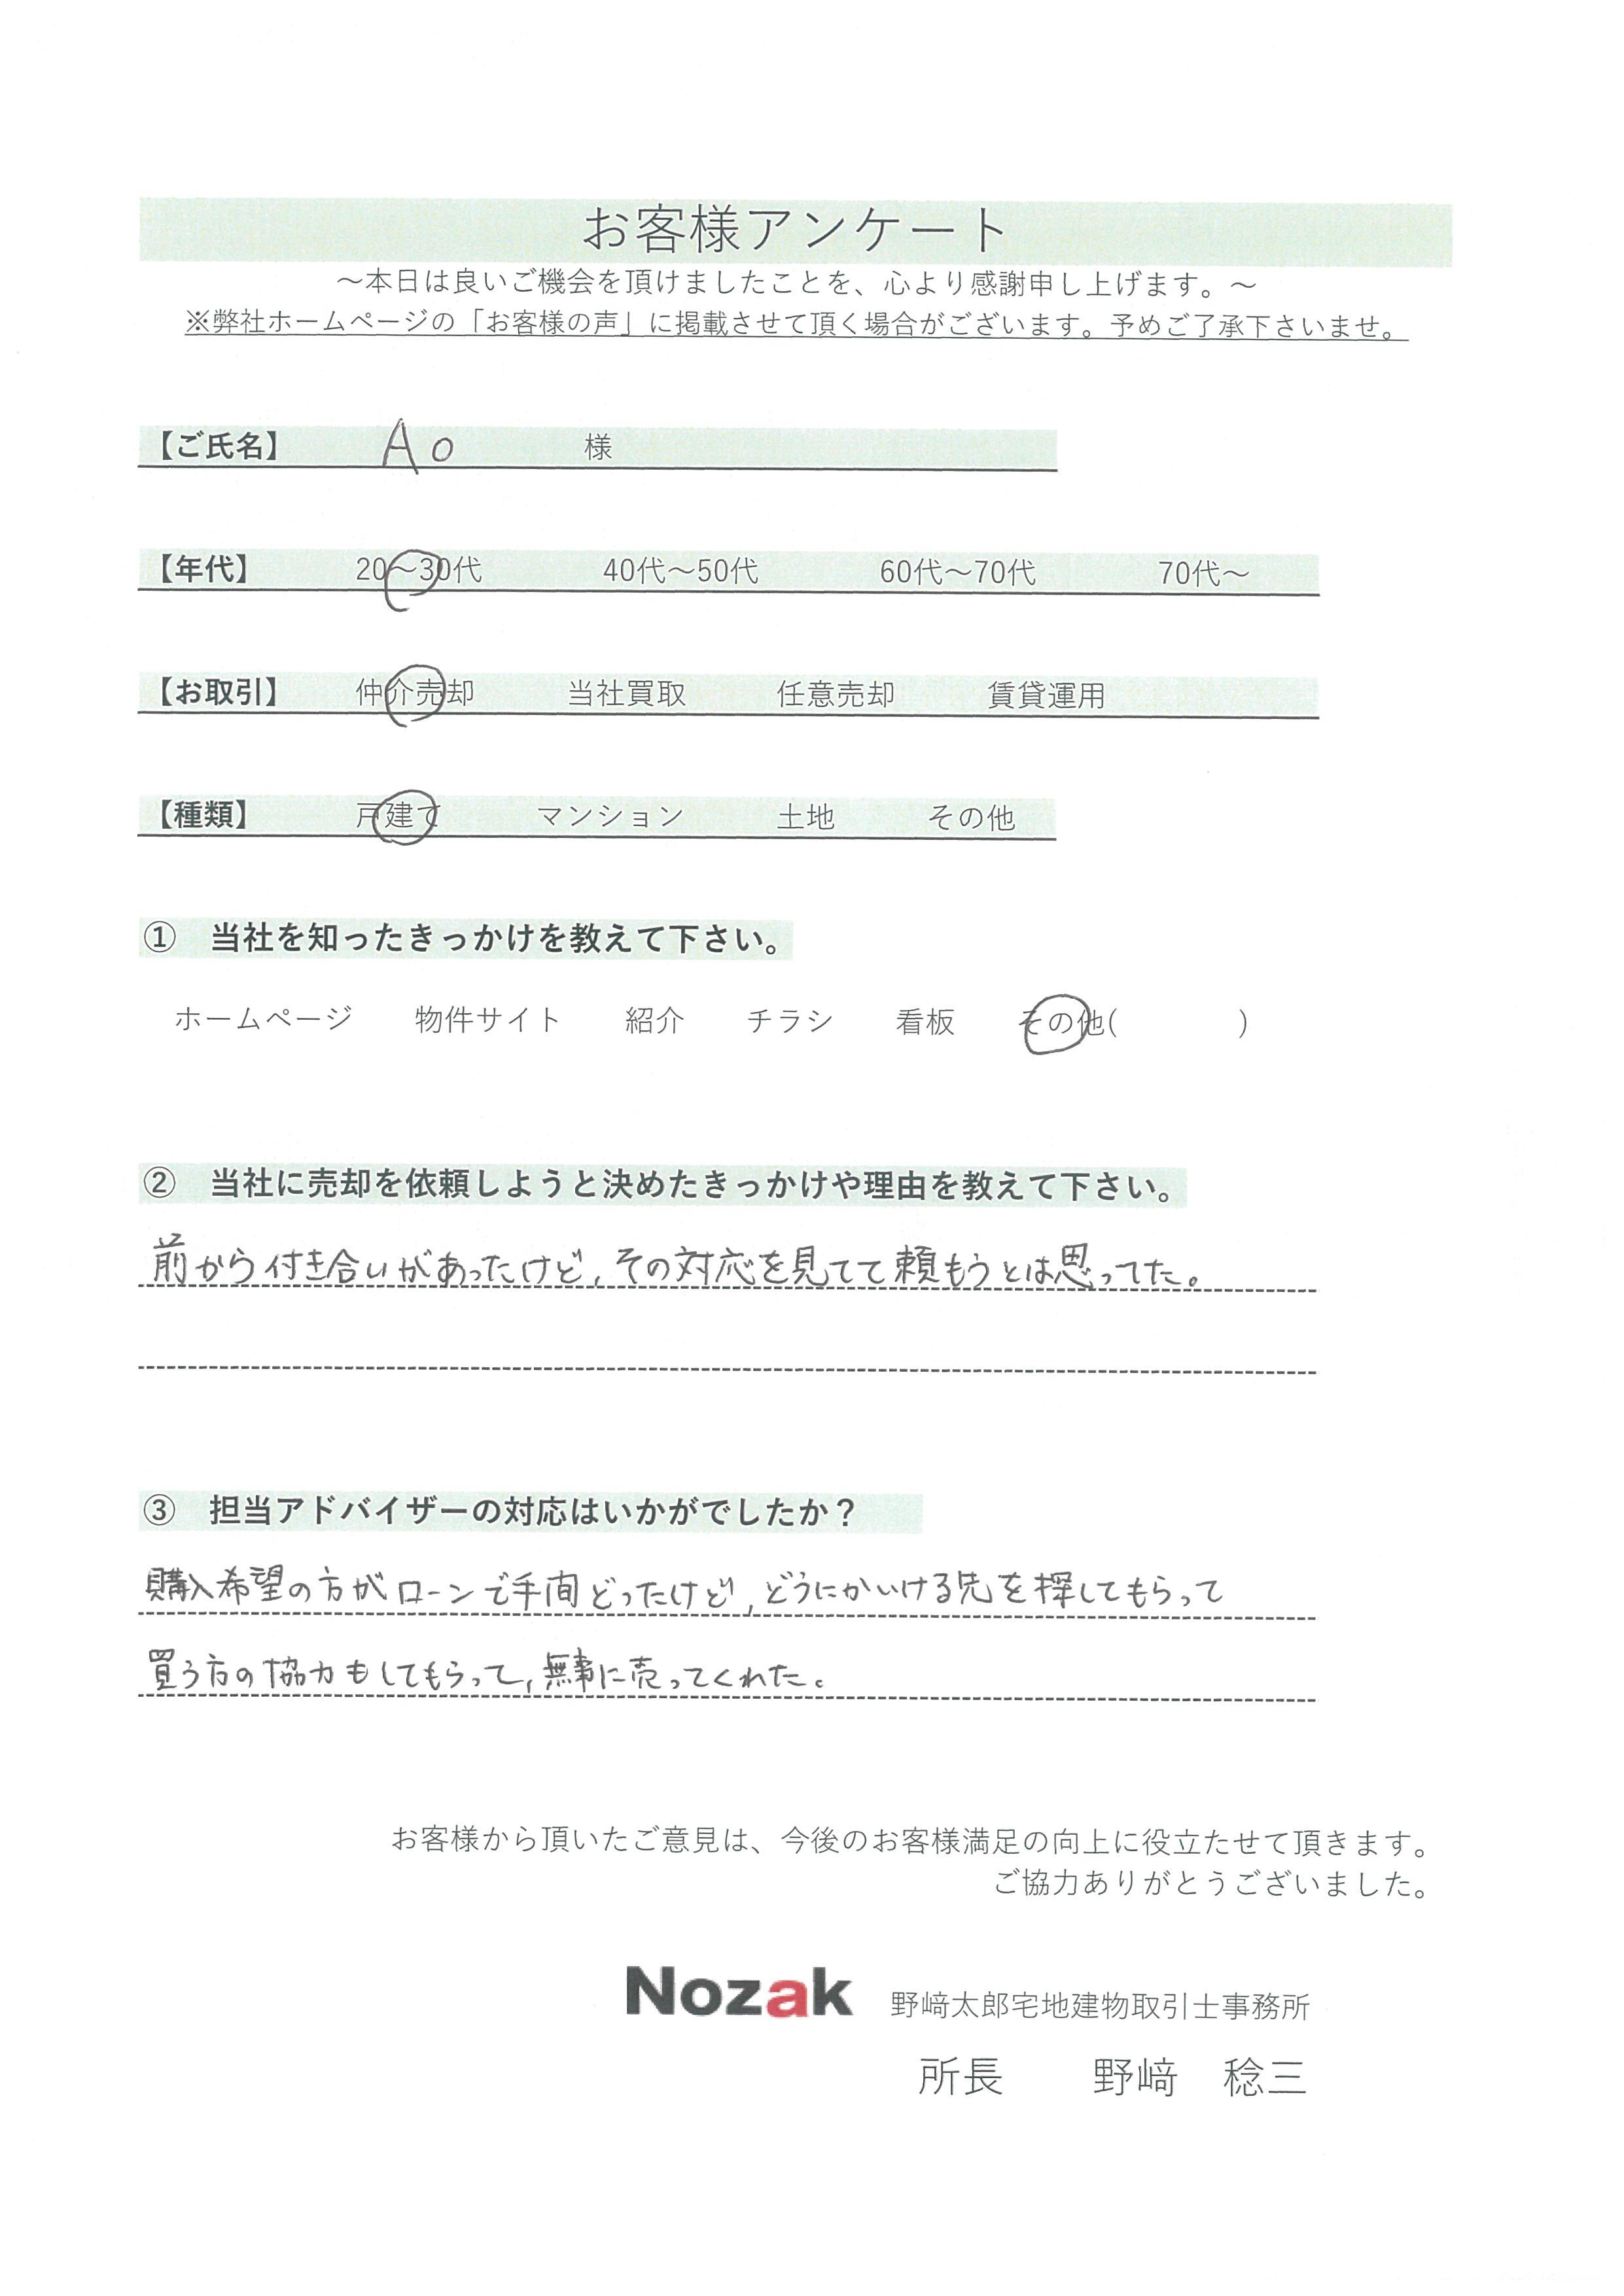 お客様アンケート
～本日は良いご機会を頂けましたことを、心より感謝申し上げます。～
※弊社ホームページの「お客様の声」に掲載させて頂く場合がございます。予めご了承下さいませ。
【ご氏名】 A o 様
【年代】 20～30代 40代～50代 60代～70代 70代～
【お取引】 仲介売却 当社買取 任意売却 賃貸運用
【種類】 戸建て マンション 土地 その他
① 当社を知ったきっかけを教えて下さい。
ホームページ 物件サイト 紹介 チラシ 看板 その他( )
② 当社に売却を依頼しようと決めたきっかけや理由を教えて下さい。
前から付き合いがあったけど,その対応を見てて頼もうとは思ってた。
③ 担当アドバイザーの対応はいかがでしたか？
購入希望の方がローンで手間どったけど,どうにかいける先を探してもらって
買う方の協力もしてもらって,無事に売ってくれた。
お客様から頂いたご意見は、今後のお客様満足の向上に役立たせて頂きます。
ご協力ありがとうございました。
Nozak 野﨑太郎宅地建物取引士事務所
所長 野﨑 稔三